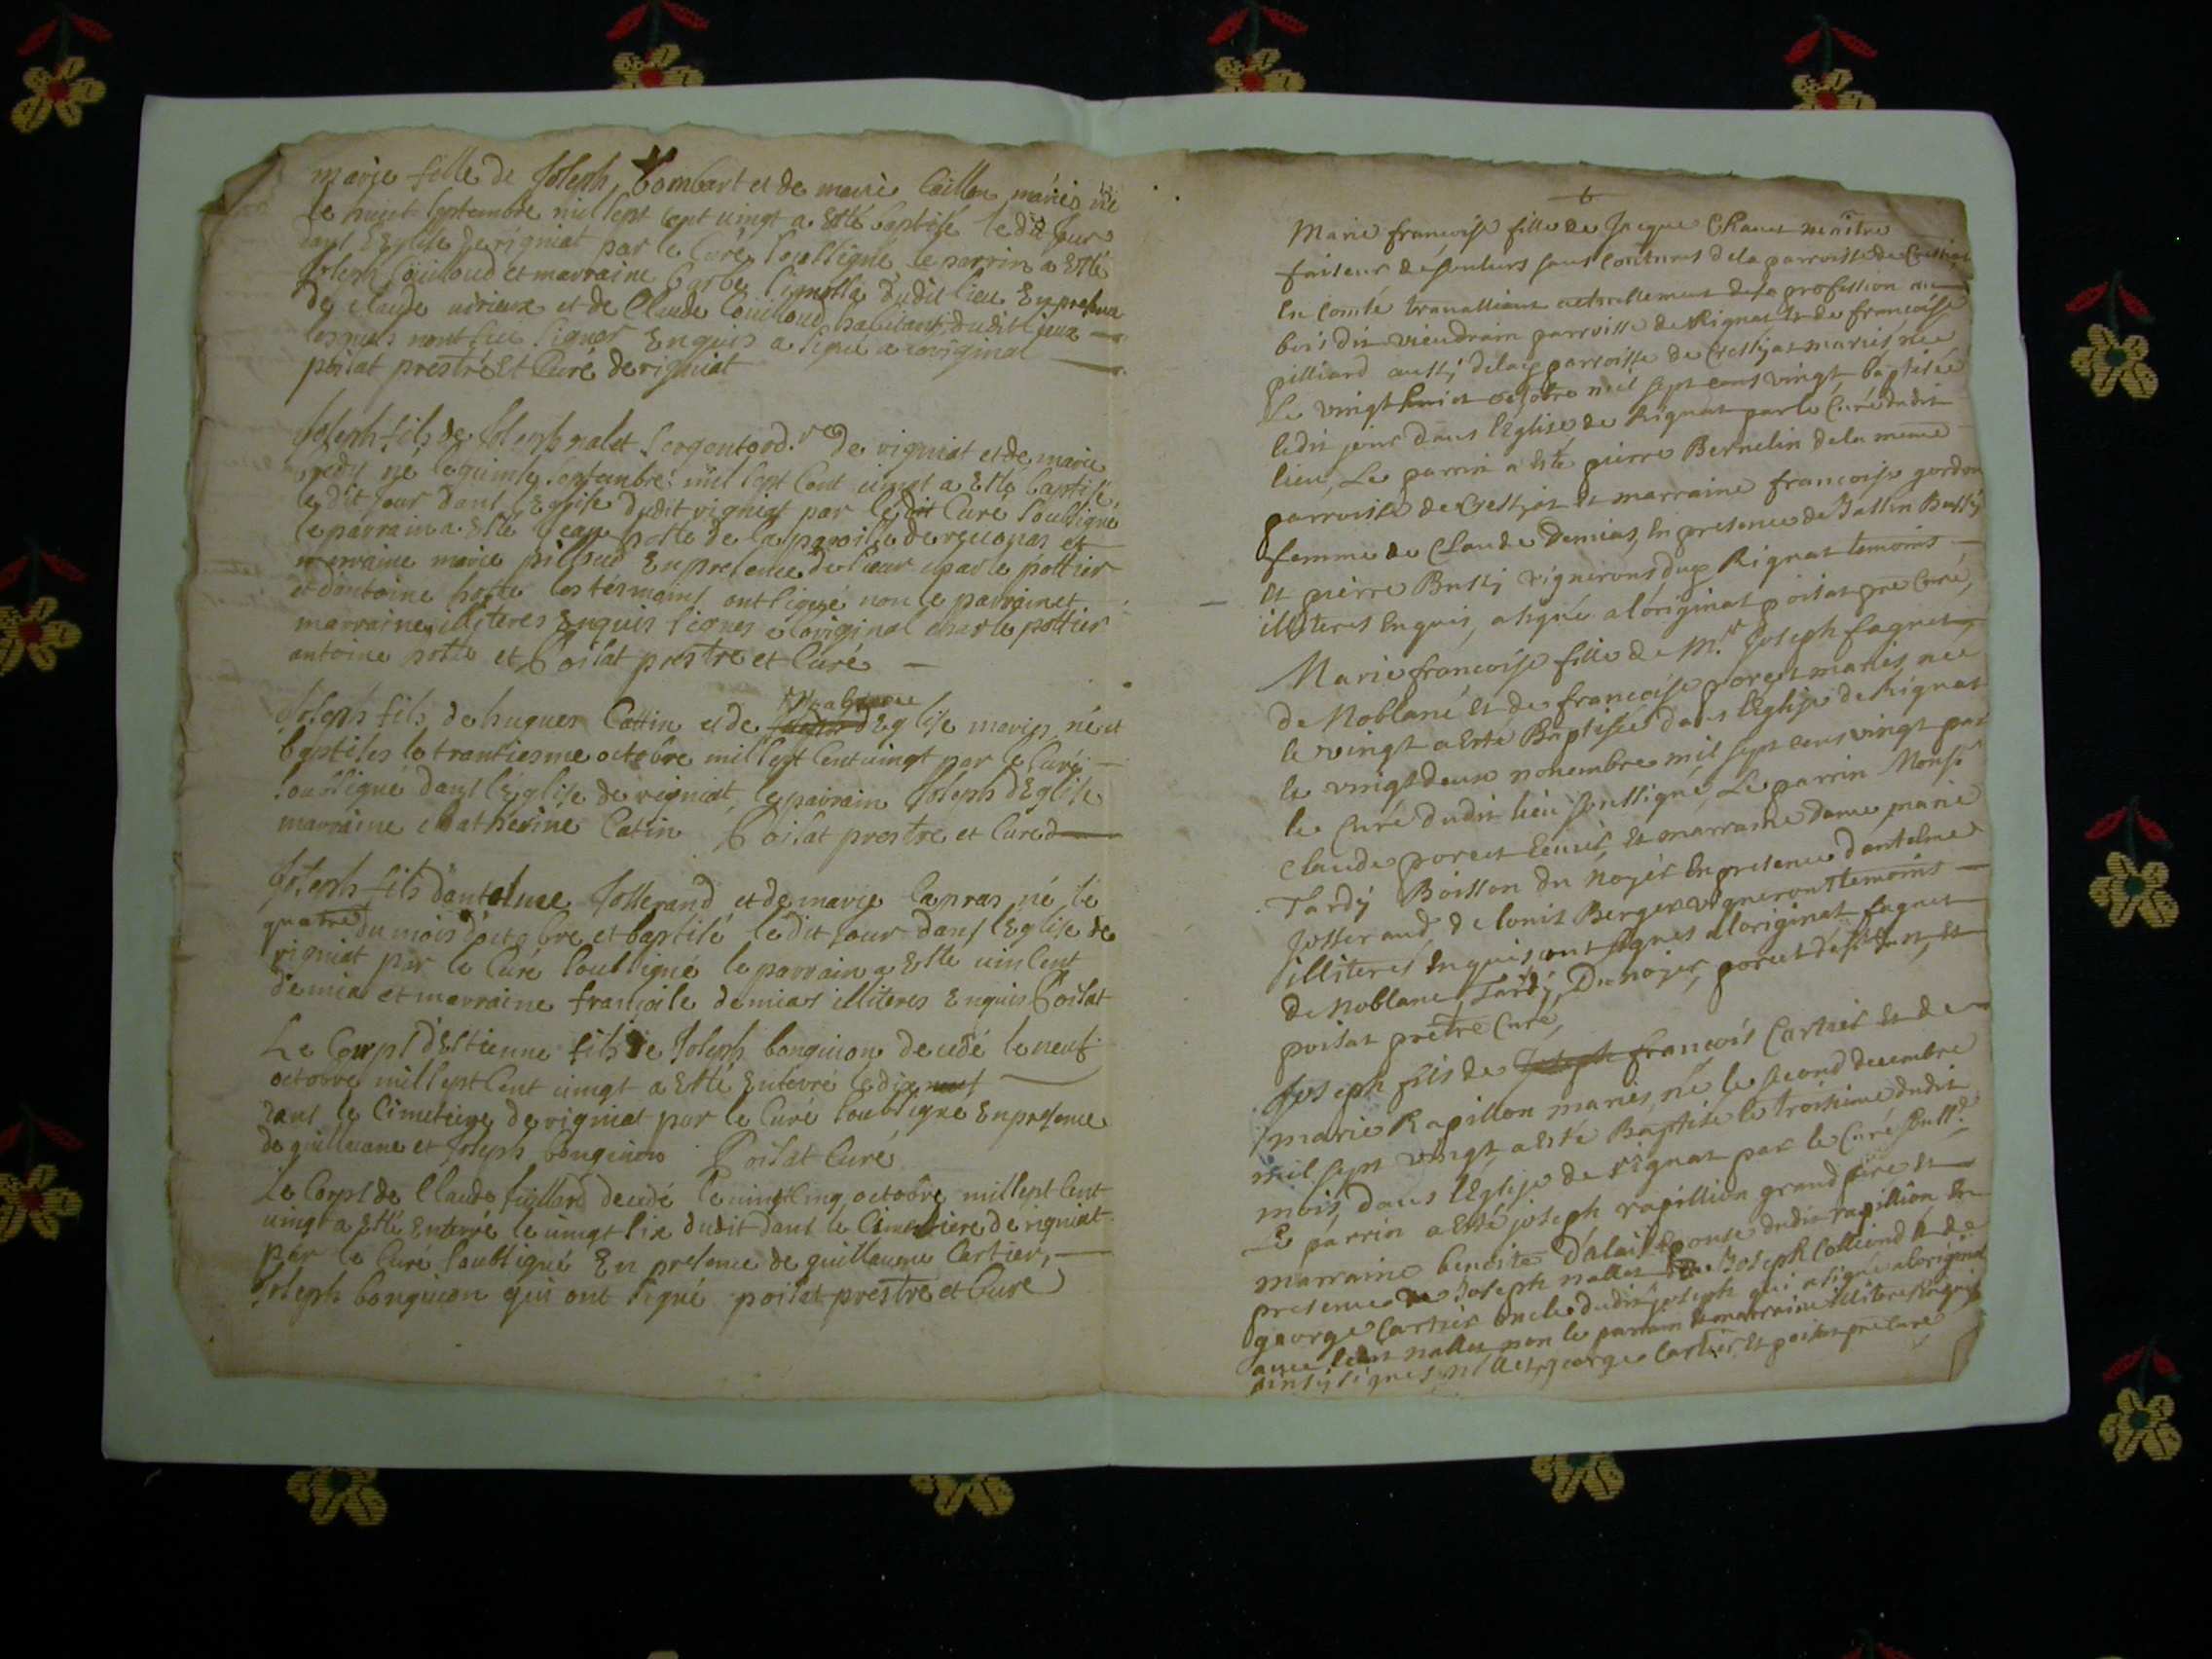 marie fille de Joseph Combart et de marie Caillon mariés née
le huict septembre mil sept cent vingt a Esté baptisé le dit Jour
dans l'Eglise de rigniat par le Curé soubsigné le parrin a Esté
Joseph Couilloud et marraine Barbe dudit lieu En presence
de Claude et de Claude Couilloud habitant dudit lieux
lesquels nont sceu signer Enquis a signé a loriginal
poisat prestre Et Curé de rigniat
Joseph fils de Joseph nalet sergent ord.re de rigniat et de marie
né le quinze septembre mil sept Cent vingt a Esté baptisé
le dit Jour dans l'Eglise dudit rigniat par ledit Curé soubsigné
le parrain a Esté Jean hotte de la paroisse de et
marraine marie En presence de sieur charle pottier
et dantoine hotte les tesmoins ont signé non le parrain et
marraine illiteres Enquis signes a loriginal charle pottier
antoine hotte et Poisat prestre et Curé
Joseph fils de hugues Cattin et de dEglise mariés né et
baptises le trantiesme octobre mil sept Cent vingt par le Curé
soubsigné dans lEglise de rigniat, le parrain Joseph dEglise
marraine Catherine Catin Poisat prestre et Curé
Joseph fils dantelme Josserand et de marie Lapras né le
quatre du mois d'octobre et baptisé le dit Jour dans lEglise de
rigniat par le Curé soubsigné le parrain a Esté vincent
demias et marraine françoise demias illiteres Enquis Poisat
Le Corps dEstienne fils de Joseph bonguion decedé le neuf
octobre mil sept Cent vingt a Esté Enterré le dix
dans le Cimetiere de rigniat par le Curé soubsigné En presence
de guillaume et Joseph bonguion Poisat Curé
Le Corps de Claude decedé le vingt cinq octobre mil sept Cent
vingt a Esté Enterré le vingt six dudit dans le Cimetiere de rigniat
par le Curé soubsigné En presence de guillaume Cartier,
Joseph bonguion qui ont signé poisat prestre et Curé
Marie francoise fille de Jacque Chanet maître
faiseur de souliers sans coutures de la parroisse de Cressiat
En Comté travalliant actuellement de sa profession au
bois dit viendrain parroisse de Rignat Et de francoise
pilliard aussy de la parroisse de Cressyat mariés née
Le vingt huict octobre mil sept cens vingt baptisée
ledit jour dans l'Eglise de Rignat par le Curé dudit
lieu, Le parrin a Esté pierre Bernelin de la meme
parroisse de Cressyat Et marraine francoise gordon
femme de Claude Demias, En presence de Bussy
Et pierre Bussy vignerons Rignat temoins
illiteres Enquis, a signé a l'original poisat pre Curé,
Marie francoise fille de M.r Joseph fagnet
de Noblané Et de francoise porcet mariés née
le vingt a Esté Baptisée dans l'Eglise de Rignat
le vingt deux novembre mil sept cens vingt par
le Curé dudit lieu soussigné, Le parrin Mons.r
Claude porcet Et marraine dame marie
Tardy Boisson du noyer En presence dantelme
Josserand & de louis Berger vignerons temoins
illiteres Enquis, ont signes a l'original fagnet
de Noblané Tardy, Du noyer, porcet Et
poisat prêtre Curé,
Joseph fils de Joseph francois Cartier Et de
marie Rapillon mariés, né le second decembre
mil sept vingt a Esté Baptisé le troisieme dudit
mois, dans l'Eglise de rignat par le Curé souss.né
Le parrin a Esté joseph rapillion grand pere Et
marraine benoite d'alais Epouse dudit rapillion En
presence de Joseph nallet de Joseph Colliand & de
george Cartier oncle dudit joseph qui a signé a loriginal
avec ledit nallet non le parrain & marraine illiteres Enquis
ainsy signes, nallet, george Cartier, Et poisat pre Curé